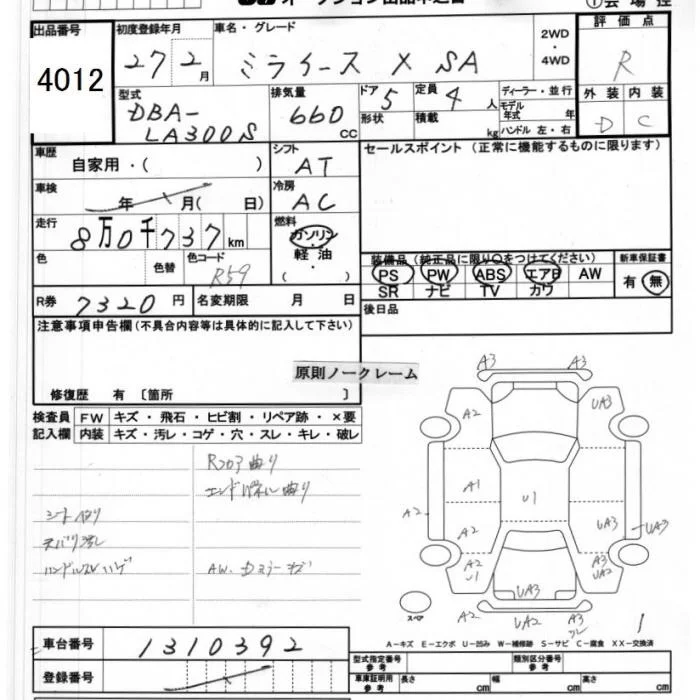 オークション出品申込書
① 会場控
出品番号
4012
初度登録年月
27 2月
車名・グレード
ミライース X SA
2WD
・
4WD
評価点
R
外装 内装
D C
型式
DBA-
LA300S
排気量
660 cc
ドア 5
形状
定員 4 人
積載 kg
ディーラー・並行
モデル
年式 年
ハンドル 左・右
車歴
自家用・( )
シフト
AT
セールスポイント (正常に機能するものに限ります)
車検
年 月( 日)
冷房
AC
走行
8万0千737km
燃料
ガソリン
・
軽油
( ・ )
色
色替
色コード
R59
装備品 (純正品に限り○をつけてください)
PS PW ABS エアB AW
SR ナビ TV カワ
新車保証書
有・無
R券 7320 円
名変期限 月 日
後日品
注意事項申告欄 (不具合内容等は具体的に記入して下さい)
原則ノークレーム
修復歴 有 〔箇所 〕
検査員
記入欄
FW キズ・飛石・ヒビ割・リペア跡・×要
内装 キズ・汚レ・コゲ・穴・スレ・キレ・破レ
Rフロア曲り
エンドパネル曲り
シート
ハンドルスレハゲ
AW.
A3 A3
A2 UA3
A1 U1
A2 A2 UA3 UA3
A2
U1
A3
UA2
UA3
スペア
A2 UA2 A3
1
A−キズ E−エクボ U−凹み W−補修跡 S−サビ C−腐食 XX−交換済
車台番号 1310392
登録番号
型式指定番号
参考
類別区分番号
参考
車庫証明用
参考
長さ cm 幅 cm 高さ cm